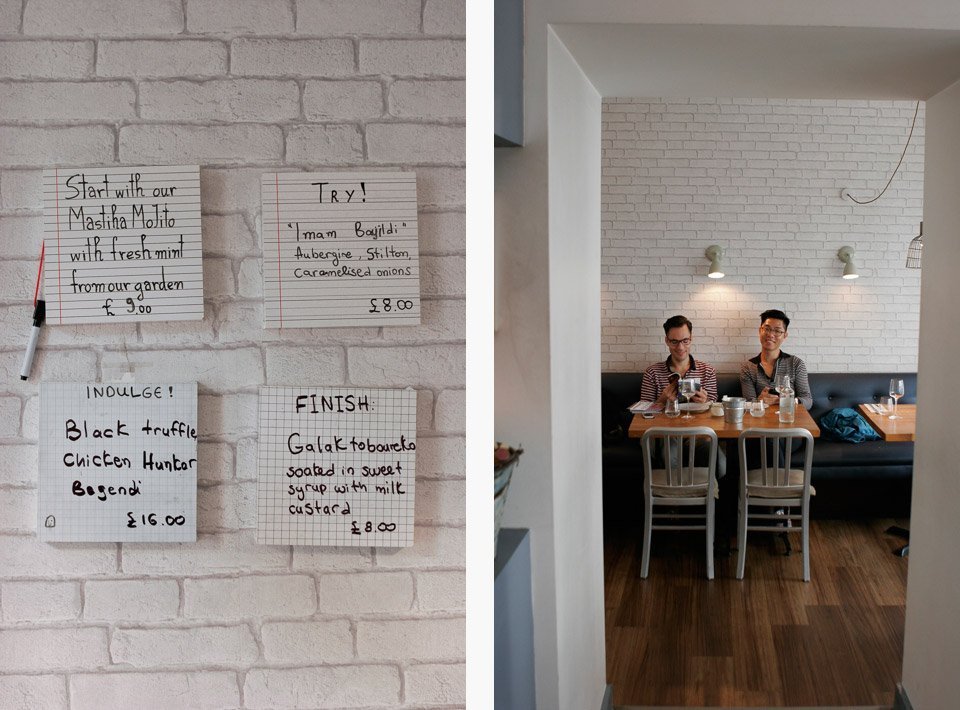 Start with our
Mastiha Mojito
with fresh mint
from our garden
£ 9.00
TRY!
"Imam Bayildi"
Aubergine, Stilton,
caramelised onions
£8.00
INDULGE!
Black truffle
Chicken Hunkar
Bagendi
£16.00
FINISH:
Galaktoboureko
soaked in sweet
syrup with milk
custard
£8.00